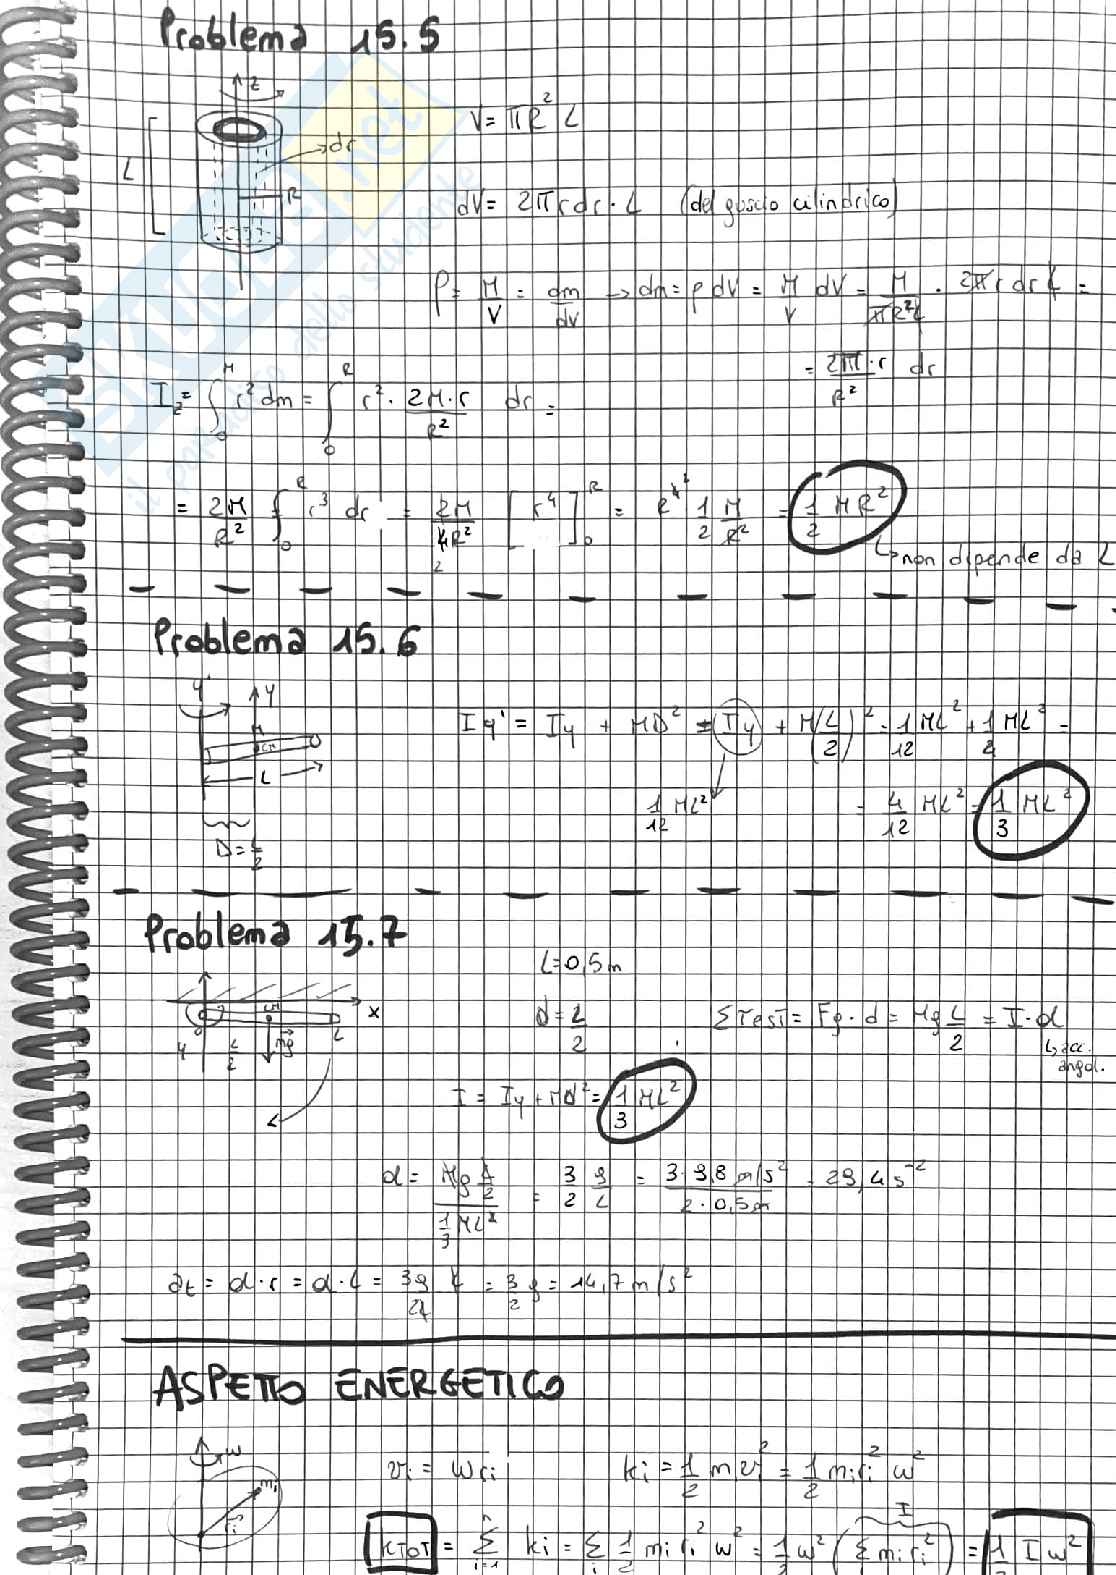 Problema 15.5
z
V = πR² L
L
dr
R
dV = 2πrdr · L (del guscio cilindrico)
ρ = M/V = dm/dV → dm = ρ dV = M/V dV = M/πR²L · 2πr dr L =
= 2M·r/R² dr
Iz = ∫₀ᴹ r² dm = ∫₀ᴿ r² · 2M·r/R² dr =
= 2M/R² ∫₀ᴿ r³ dr = 2M/4R² [r⁴]₀ᴿ = R⁴ 1/2 M/R² = 1/2 MR²
↳ non dipende da L
Problema 15.6
y' y
M
CM
L
D = L/2
Iy' = Iy + MD² = Iy + M(L/2)² = 1/12 ML² + 1/4 ML² =
1/12 ML²
= 4/12 ML² = 1/3 ML²
Problema 15.7
L = 0,5 m
CM
x
O
L
y
L/2
mg
d = L/2
Στest = Fg · d = Mg L/2 = I · α
↳ acc. angol.
I = Iy + Md² = 1/3 ML²
α = Mg L/2 / 1/3 ML² = 3/2 g/L = 3 · 9,8 m/s² / 2 · 0,5 m = 29,4 s⁻²
at = α · r = α · L = 3g/2L L = 3/2 g = 14,7 m/s²
ASPETTO ENERGETICO
ω
mi
ri
vi = ωri
ki = 1/2 m vi² = 1/2 mi ri² ω²
I
kTOT = Σ ki = Σ 1/2 mi ri² ω² = 1/2 ω² (Σ mi ri²) = 1/2 I ω²
SKUOLA.net
il paradiso dello studente